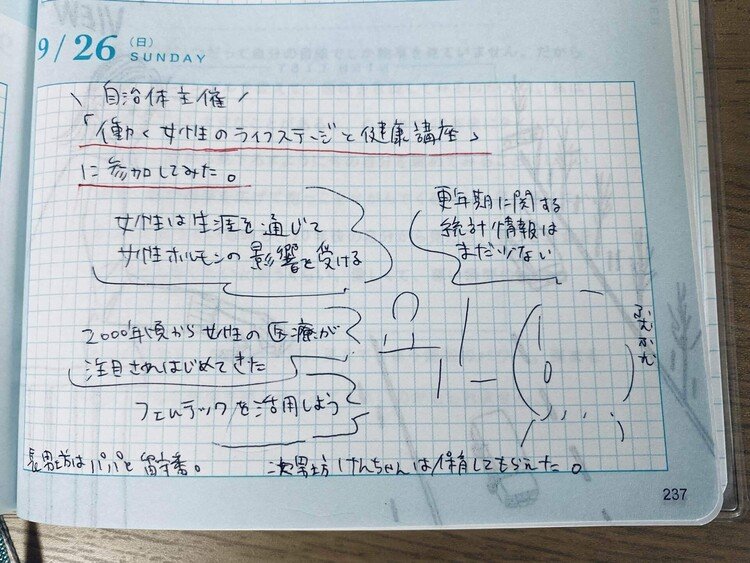 9/26 (日)
SUNDAY
\ 自治体主催 /
「働く女性のライフステージと健康講座」
に参加してみた。
女性は生涯を通じて
女性ホルモンの影響を受ける
更年期に関する
統計情報は
まだ少ない
2000年頃から女性の医療が
注目されはじめてきた
フェムテックを活用しよう
ふむふむ
長男坊はパパと留守番。
次男坊けんちゃんは保育してもらえた。
237